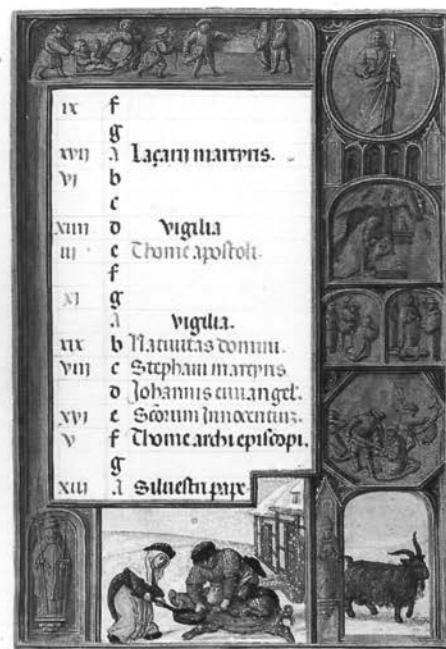 ix f
g
xvii A Laçari martyris.
vi b
c
xiiii d vigilia
iii e Thome apostoli.
f
xi g
A vigilia.
xix b Nativitas domini.
viii c Stephani martyris
d Johannis euuangel.
xvi e Scorum Innocentium.
v f Thome archi episcopi.
g
xiii A Silvestri pape